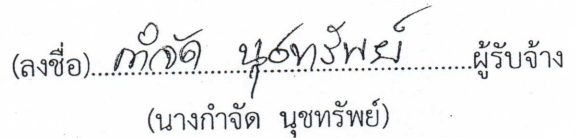 (ลงชื่อ)..กำจัด นุชทรัพย์..ผู้รับจ้าง
(นางกำจัด นุชทรัพย์)